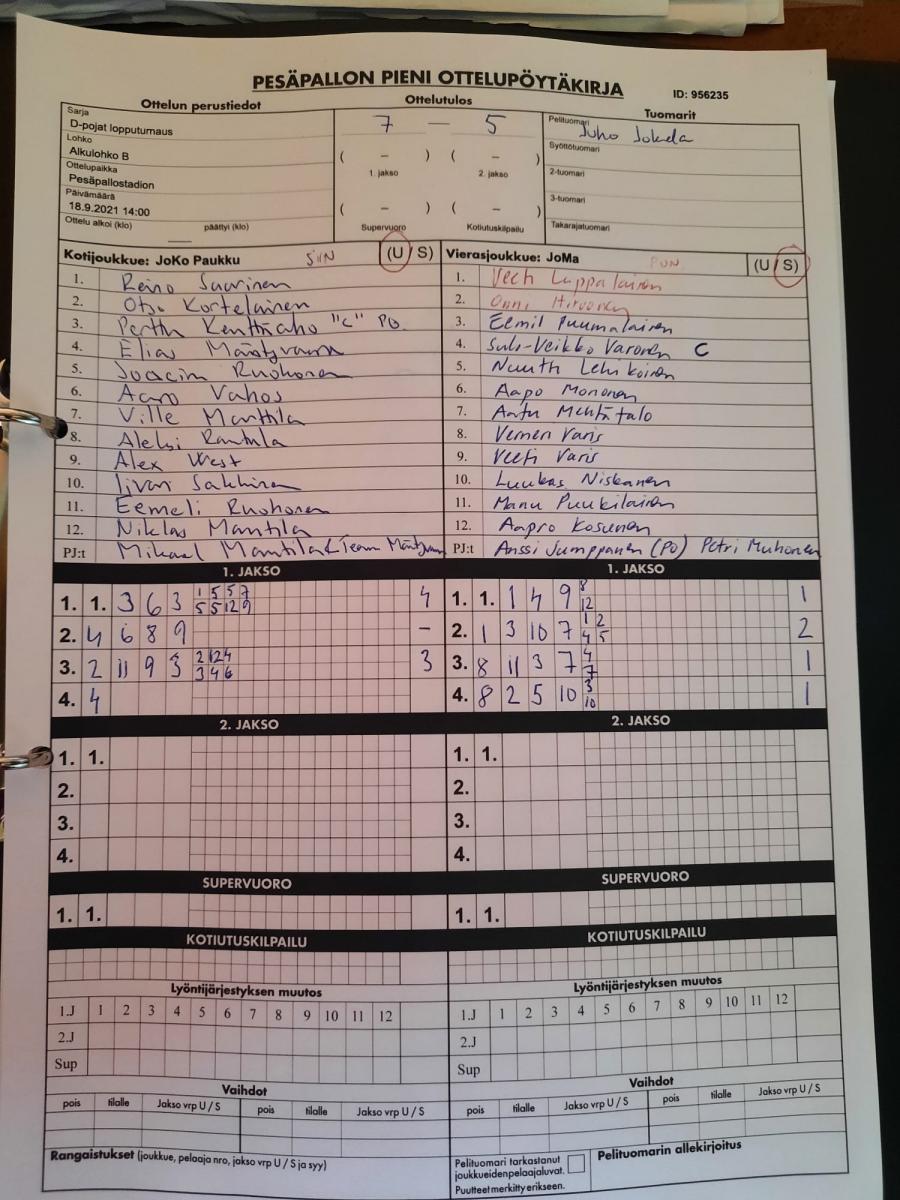 PESÄPALLON PIENI OTTELUPÖYTÄKIRJA
ID: 956235
Ottelun perustiedot
Ottelutulos
Tuomarit
Sarja
D-pojat lopputurnaus
Lohko
Alkulohko B
Ottelupaikka
Pesäpallostadion
Päivämäärä
18.9.2021 14:00
Ottelu alkoi (klo) päättyi (klo)
7 — 5
( – ) ( – )
1. jakso 2. jakso
( – ) ( – )
Supervuoro Kotiutuskilpailu
Pelituomari Juho Jokela
Syöttötuomari
2-tuomari
3-tuomari
Takarajatuomari
Kotijoukkue: JoKo Paukku SIN (U / S)
1. Reino Saarinen
2. Otso Kortelainen
3. Perttu Kenttäaho "C" PO.
4. Elias
5. Joacim Ruohonen
6. Aaro Vahos
7. Ville Manttila
8. Aleksi Rantala
9. Alex West
10. Iivari Sakkinen
11. Eemeli Ruohonen
12. Niklas Mantila
PJ:t Mikael Mantila & Team
Vierasjoukkue: JoMa PUN (U / S)
1. Veeti Luppalainen
2. Onni Hirvonen
3. Eemil Puumalainen
4. Sulo-Veikko Varonen C
5. Nuutti Lehikoinen
6. Aapo Mononen
7. Aatu Mehtätalo
8. Verneri Varis
9. Veeti Varis
10. Luukas Niskanen
11. Manu Puukilainen
12. Aapro Kosunen
PJ:t Anssi Jumppanen (PO) Petri Muhonen
1. JAKSO
1. 1. 3 6 3 1 5 5 7 4
5 5 12 9
2. 4 6 8 9 –
3. 2 11 9 3 2 12 4 3
3 4 6
4. 4
1. JAKSO
1. 1. 1 4 9 8 1
12
2. 1 3 10 7 1 2 2
4 5
3. 8 11 3 7 4 1
7
4. 8 2 5 10 3 1
10
2. JAKSO
1. 1.
2.
3.
4.
2. JAKSO
1. 1.
2.
3.
4.
SUPERVUORO
1. 1.
SUPERVUORO
1. 1.
KOTIUTUSKILPAILU
KOTIUTUSKILPAILU
Lyöntijärjestyksen muutos
1.J 1 2 3 4 5 6 7 8 9 10 11 12
2.J
Sup
Lyöntijärjestyksen muutos
1.J 1 2 3 4 5 6 7 8 9 10 11 12
2.J
Sup
Vaihdot
pois tilalle Jakso vrp U / S pois tilalle Jakso vrp U / S
Vaihdot
pois tilalle Jakso vrp U / S pois tilalle Jakso vrp U / S
Rangaistukset (joukkue, pelaaja nro, jakso vrp U / S ja syy)
Pelituomari tarkastanut
joukkueidenpelaajaluvat.
Puutteet merkitty erikseen.
Pelituomarin allekirjoitus